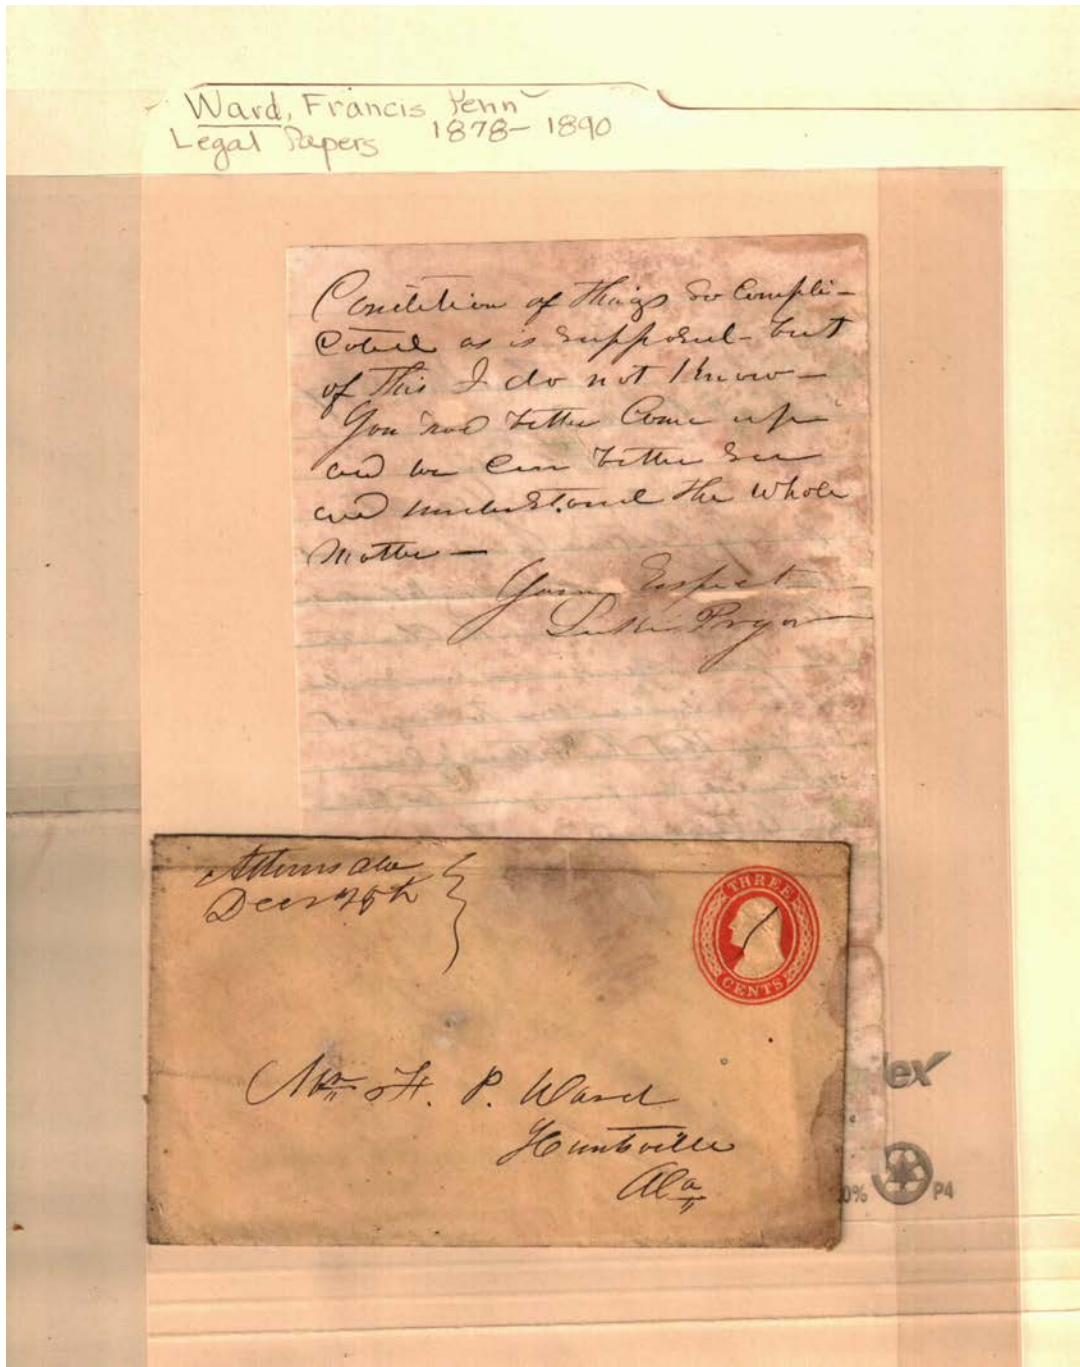 Ward, Francis Penn
Legal Papers 1878-1890
Condition of things so compli-
cated as is supposed - but
of this I do not know -
You had better Come up
and we can better see
and understand the whole
matter -
Your Respect
Luke Pryor
Athens Ala
Decr 25th
THREE
CENTS
Mr F. P. Ward
Huntsville
Ala
ex
0% P4